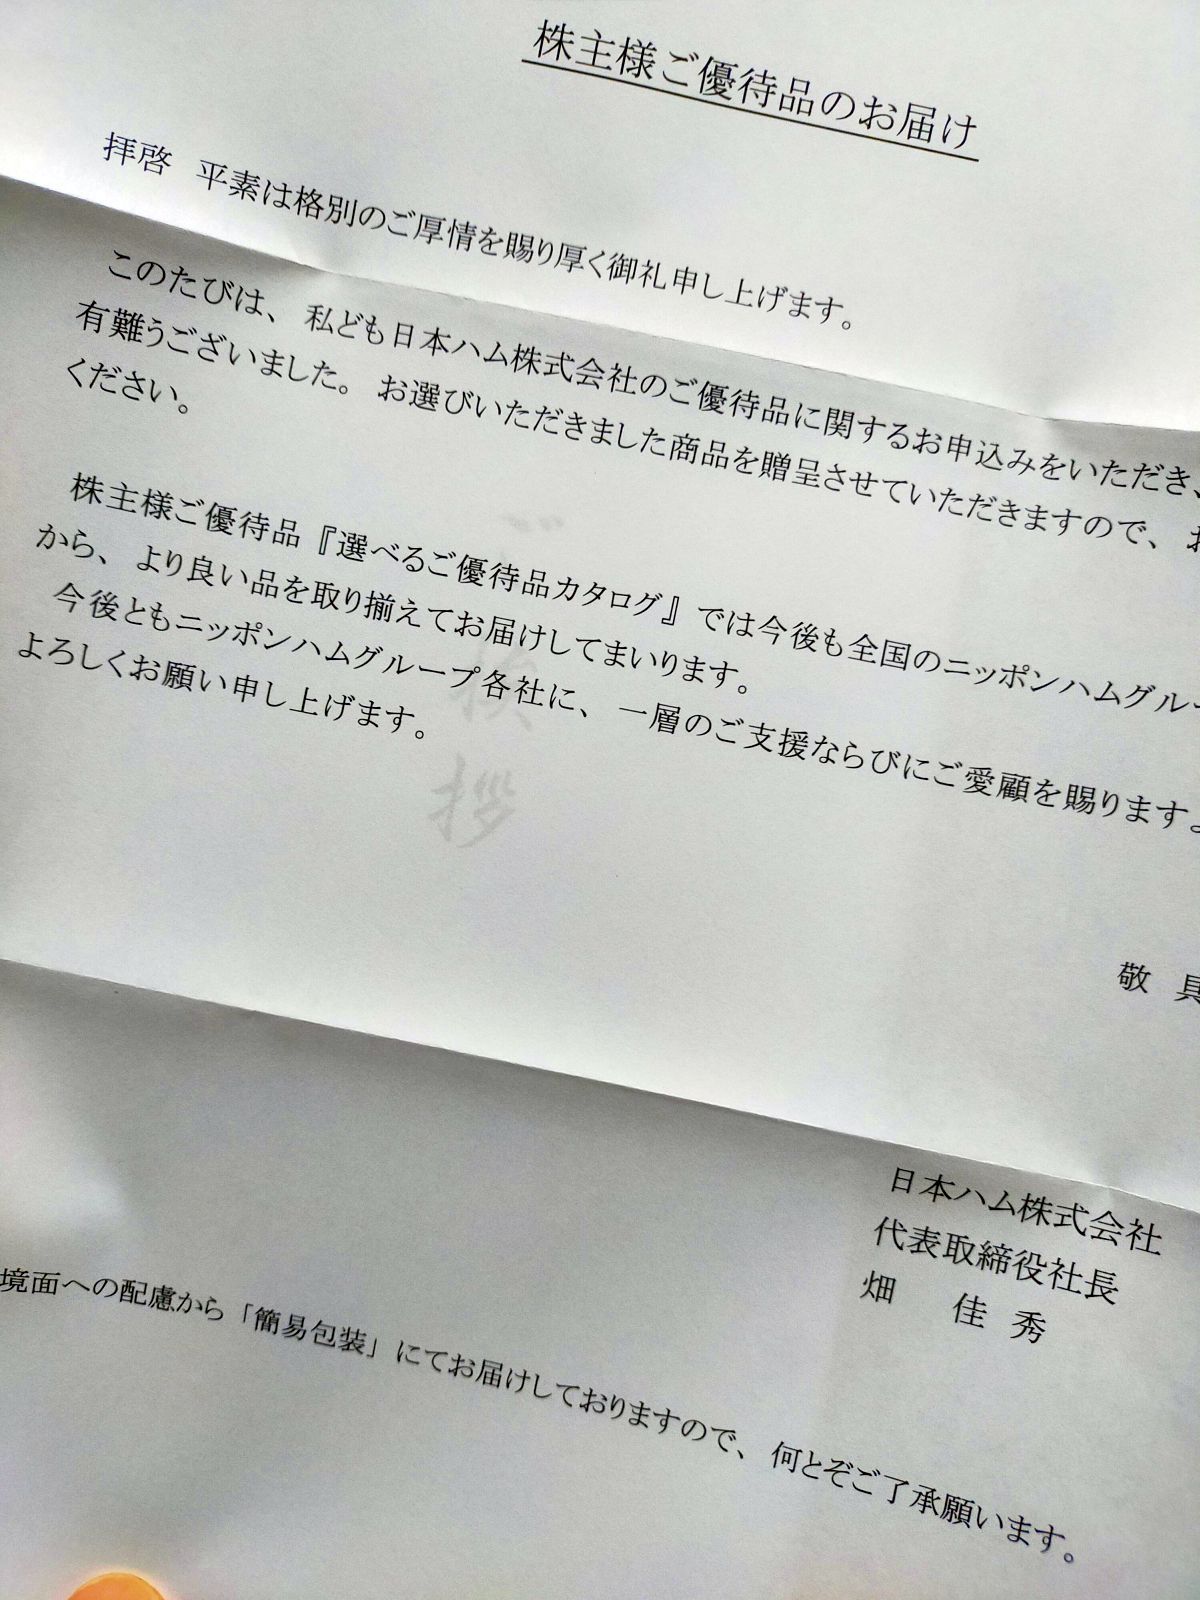 株主様ご優待品のお届け
拝啓 平素は格別のご厚情を賜り厚く御礼申し上げます。
このたびは、私ども日本ハム株式会社のご優待品に関するお申込みをいただき、
有難うございました。お選びいただきました商品を贈呈させていただきますので、
ください。
株主様ご優待品『選べるご優待品カタログ』では今後も全国のニッポンハムグルー
から、より良い品を取り揃えてお届けしてまいります。
今後ともニッポンハムグループ各社に、一層のご支援ならびにご愛顧を賜ります
よろしくお願い申し上げます。
ご挨拶
敬具
日本ハム株式会社
代表取締役社長
畑 佳秀
境面への配慮から「簡易包装」にてお届けしておりますので、何とぞご了承願います。